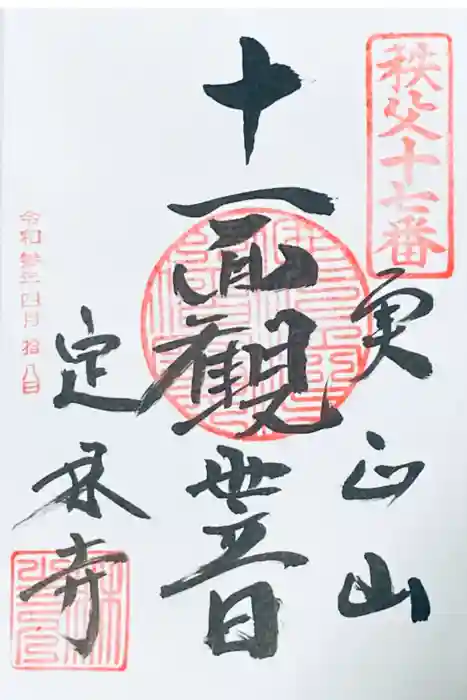 秩父十七番
実正山
十一面観世音
定林寺
令和弐年四月拾八日